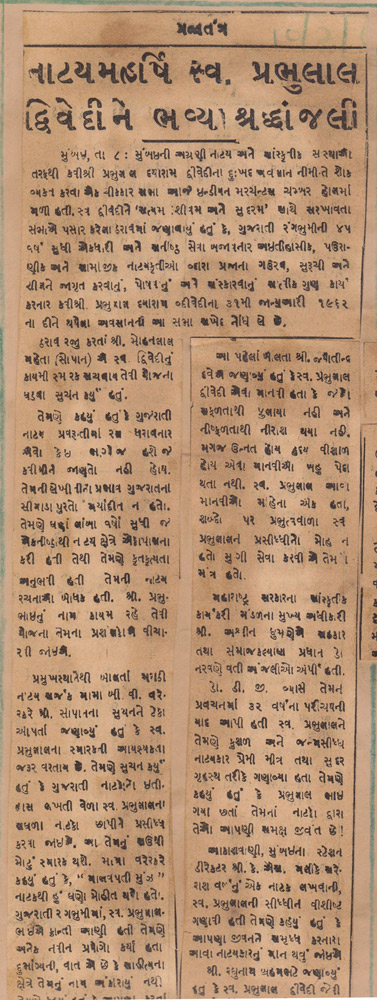 પ્રજાતંત્ર
નાટયમહર્ષિ સ્વ. પ્રભુલાલ
દ્વિવેદીને ભવ્ય શ્રદ્ધાંજલી
મુંબઈ, તા ૮ : મુંબઈની અગ્રણી નાટય અને સાંસ્કૃતીક સંસ્થાઓ
તરફથી કવીશ્રી પ્રભુલાલ દયારામ દ્વીવેદીના દુઃખદ અવસાન નીમીતે શોક
વ્યકત કરવા એક નીકળાર સભા આજે ઇન્ડીયન મરચન્ટસ ચેમ્બર હોલમાં
મળી હતી. સ્વ દ્વિવેદીને 'સત્યમ શીવમ અને સુંદરમ' સાથે સરખાવતા
સભાએ પસાર કરેલા ઠરાવમાં જણાવાયું હતું કે, ગુજરાતી રંગભુમીની ૪૫
વર્ષ સુધી એકધારી અને સનીષ્ઠ સેવા બજાવનાર ઐતીહાસીક, પૌરા-
ણીક અને સામાજીક નાટયકૃતીઓ દ્વારા પ્રજાના ગૌરવ, સુરુચી અને
ધીરજને જાગૃત કરવાનું, પોષવાનું અને સંસ્કારવાનું સાત્વીક ગુણ કાર્ય
કરનાર કવીશ્રી. પ્રભુલાલ દયારામ દ્વીવેદીના ૩૧મી જાન્યુઆરી ૧૯૬૨
ના દીને થયેલા અવસાનની આ સભા સખેદ નોંધ લે છે.
ઠરાવ રજુ કરતાં શ્રી. મોહનલાલ
મહેતા (સોપાન) એ સ્વ દ્વિવેદીનું
કાયમી સ્મરક રચવા તેવી યોજના
ઘડવા સુચન કર્યું હતું.
તેમણે કહ્યું હતું કે ગુજરાતી
નાટય પ્રવૃત્તીમાં રસ ધરાવનાર
એવો કોઇ ભાગ્યેજ હશે જે
કવીશ્રીને જાણતો નહીં હોય.
તેમની લેખીનીનો પ્રભાવ ગુજરાતના
સીમાડા પુરતો મર્યાદીત ન હતો.
તેમણે ઘણાં લાંબા વર્ષો સુધી જે
એકનીષ્ઠાથી નાટય ક્ષેત્રે એકોપાસના
કરી હતી તેથી તેમણે કૃતકૃત્યતા
અનુભવી હતી તેમની નાટય
રચનાઓ બોધક હતી. શ્રી. પ્રભુ-
ભાઇનું નામ કાયમ રહે તેવી
યોજના તેમના પ્રશંસકોએ વીચા-
રવી જોઈએ.
પ્રમુખસ્થાનેથી બોલતાં મરાઠી
નાટય સર્જક મામા બી. વી. વરે-
રકરે શ્રી. સોપાનના સુચનને ટેકો
આપતાં જણાવ્યું હતું કે સ્વ.
પ્રભુલાલના સ્મારકની આવશ્યકતા
જરૂર વરતાય છે. તેમણે સુચન કર્યું
હતું કે ગુજરાતી નાટકોનો ઇતી-
હાસ લખતી વેળા સ્વ. પ્રભુલાલના
સઘળા નાટકો છાપીને પ્રસીધ્ધ
કરવા જોઇએ. આ તેમનું સૌથી
મોટું સ્મારક થશે. મામા વરેરકરે
કહ્યું હતું કે, "માલવપતી મુંજ"
નાટકથી હું ઘણો મોહીત થયો હતો.
ગુજરાતી રંગભુમીમાં, સ્વ. પ્રભુલાલ-
ભાઇએ ક્રાન્તી આણી હતી તેમણે
અનેક નવીન પ્રયોગો કર્યા હતા
દુર્ભાગ્યની, વાત એ છે કે સાહીત્યના
ક્ષેત્રે તેમનું નામ અંકાયું નથી
આ પહેલાં બોલતા શ્રી. જયોતીન્દ્ર
દવેએ જણાવ્યું હતું કે સ્વ. પ્રભુલાલ
દ્વીવેદી એવા માનવી હતા કે જેઓ
સફળતાથી ફુલાયા નહીં અને
નીષ્ફળતાથી નીરાશ થયા નહીં.
મગજ ઉન્નત હોય હૃદય વીશાળ
હોય એવા માનવીઓ બહુ પેદા
થતા નથી. સ્વ. પ્રભુલાલ આવા
માનવીઓ માંહેના એક હતા,
શબ્દો પર પ્રભુત્વવાળા સ્વ
પ્રભુલાલને પ્રસીધ્ધીનો મોહ ન
હતો મુંગી સેવા કરવી એ તેમનો
મંત્ર હતો.
મહારાષ્ટ્ર સરકારના સાંસ્કૃતીક
કાર્યકરી મંડળના મુખ્ય અધીકારી
શ્રી. અશ્વીન કુમારેએ સહકાર
તથા સમાજકલ્યાણ પ્રધાન ડો
નરવણે વતી અંજલીઓ અર્પી હતી.
ડો. ડી. જી. વ્યાસે તેમના
પ્રવચનમાં ૪૨ વર્ષના પરીચયની
યાદ આપી હતી સ્વ. પ્રભુલાલને
તેમણે કુશળ અને જન્મસીધ્ધ
નાટયકાર પ્રેમી મીત્ર તથા સદ્દ
ગૃહસ્થ તરીકે ગણાવ્યા હતા તેમણે
કહ્યું હતું કે પ્રભુલાલ ભાઇ
ગયા છતાં તેમનાં નાટકો દ્વારા
તેઓ આપણી સમક્ષ જીવંત છે!
આકાશવાણી, મુંબઈના સ્ટેશન
ડીરેકટર શ્રી. કે. એસ. મલીકે સરે-
રાશ વર્ષનું એક નાટક લખવાની,
સ્વ. પ્રભુલાલની સીધ્ધીને વીશીષ્ટ
ગણાવી હતી તેમણે કહ્યું હતું કે
આપણા જીવનને સમૃધ્ધ કરનારા
આવા નાટયકારોનું માન થવું જોઈએ
શ્રી. રઘુનાથ બ્રહ્મભટે જણાવ્યું
હતું કે સ્વ. પ્રભુલાલ દ્વીવેદી જેવી